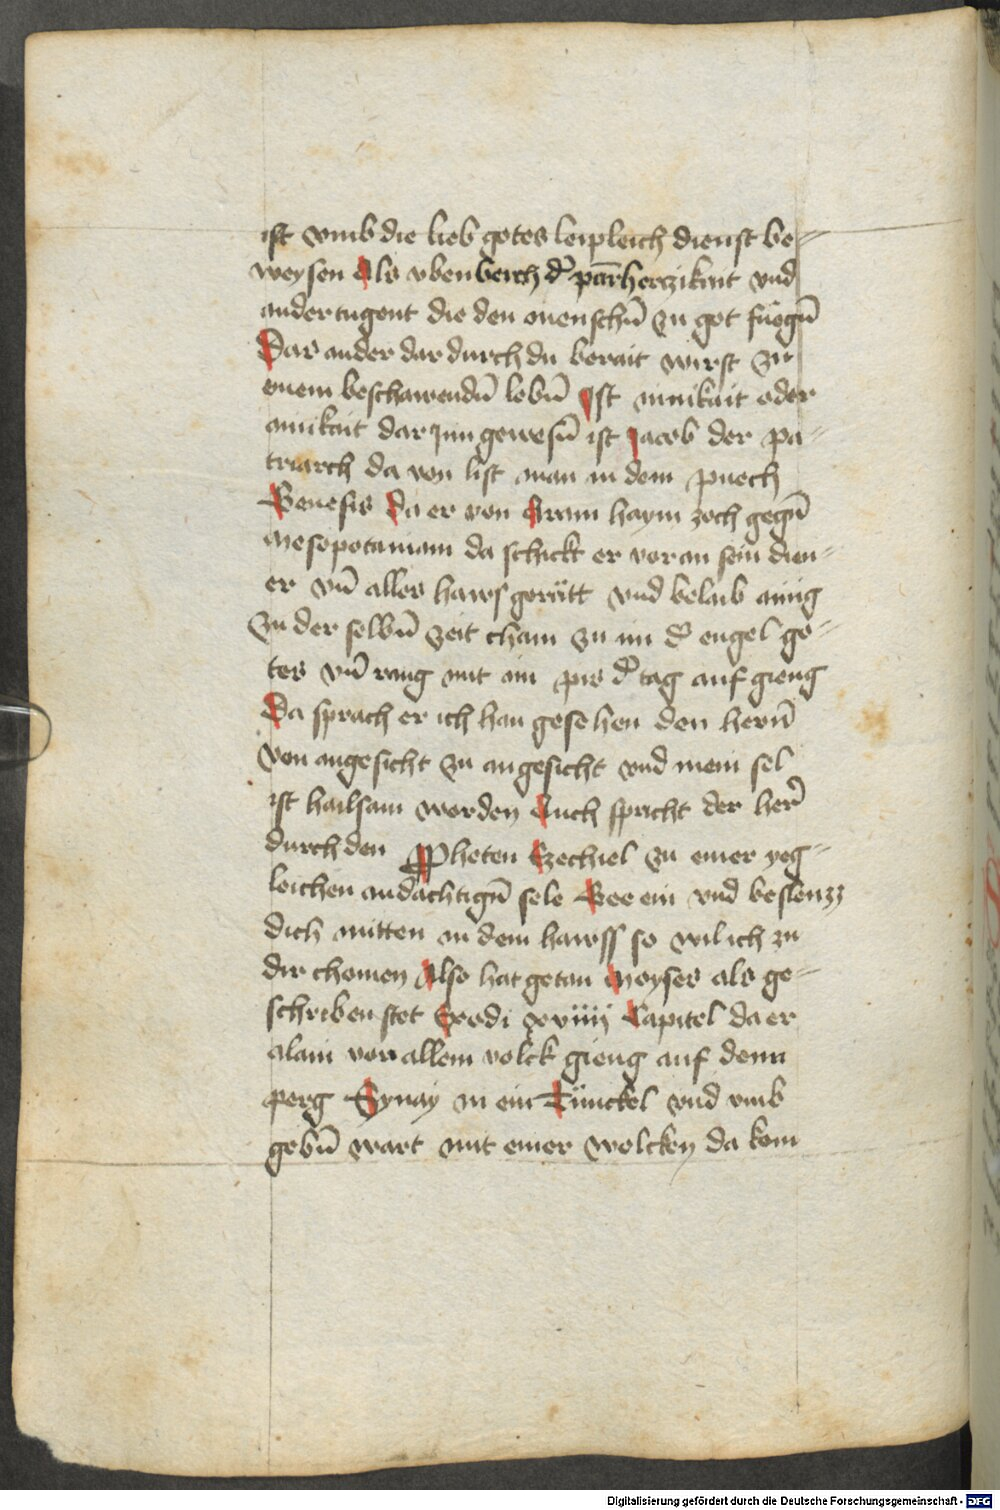 ist vmb die lieb gotes leipleich dienst be-
weysen Als vbenberch d̾ parm̄herczikait vnd
ander tugent die den menschn̄ zu got fuegn̄
Das ander dar durch du berait wirst zu
einem beschawendn̄ lebn̄ Ist ainikait oder
ainikait dar jnn gewesn̄ ist Jacob der pa-
triarch da von list man in dem puech
Genesis Da er von Aram haym zoch gegn̄
mesopotaniam da schickt er voran sein dien-
er vn̄ alles haws gerätt vnd belaib ainig
Zu der selbn̄ zeit cham zu im d̾ engel go-
tes vn̄ rang mit im pis d̾ tag auf gieng
Da sprach er ich han gesehen den hern̄
von angesicht zu angesicht vnd mein sel
ist hailsam worden Auch spricht der her̾
durch den Ppheten Ezechiel zu einer yeg-
leichen andächtign̄ sele Gee ein vnd besleuzz
dich mitten in dem hawss so wil ich zu
dir chomen Also hat getan Moyses als ge-
schriben stet Exodi xxviiij Capitel da er
alain von allem volck gieng auf denn
perg Synay in ein Tünckel vnd vmb
gebn̄ wart mit einer wolcken da kom
Digitalisierung gefördert durch die Deutsche Forschungsgemeinschaft - DFG